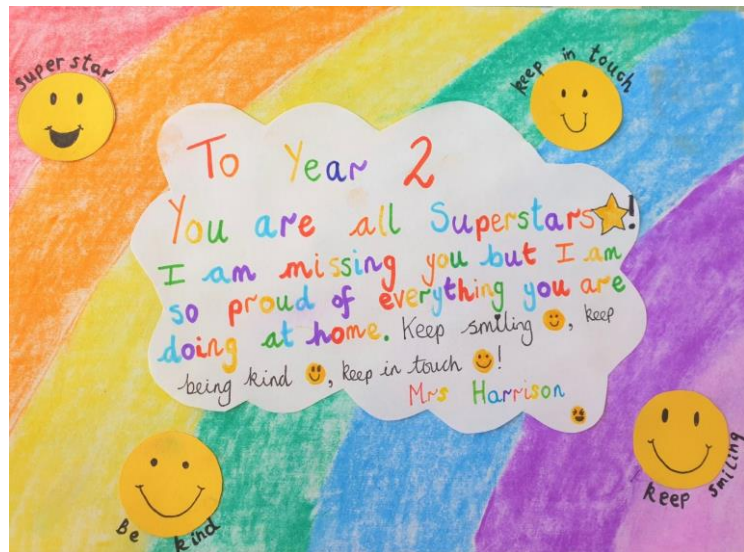 super star
keep in touch
To Year 2
You are all Superstars!
I am missing you but I am
so proud of everything you are
doing at home. Keep smiling, keep
being kind, keep in touch!
Mrs Harrison
Be kind
keep smiling